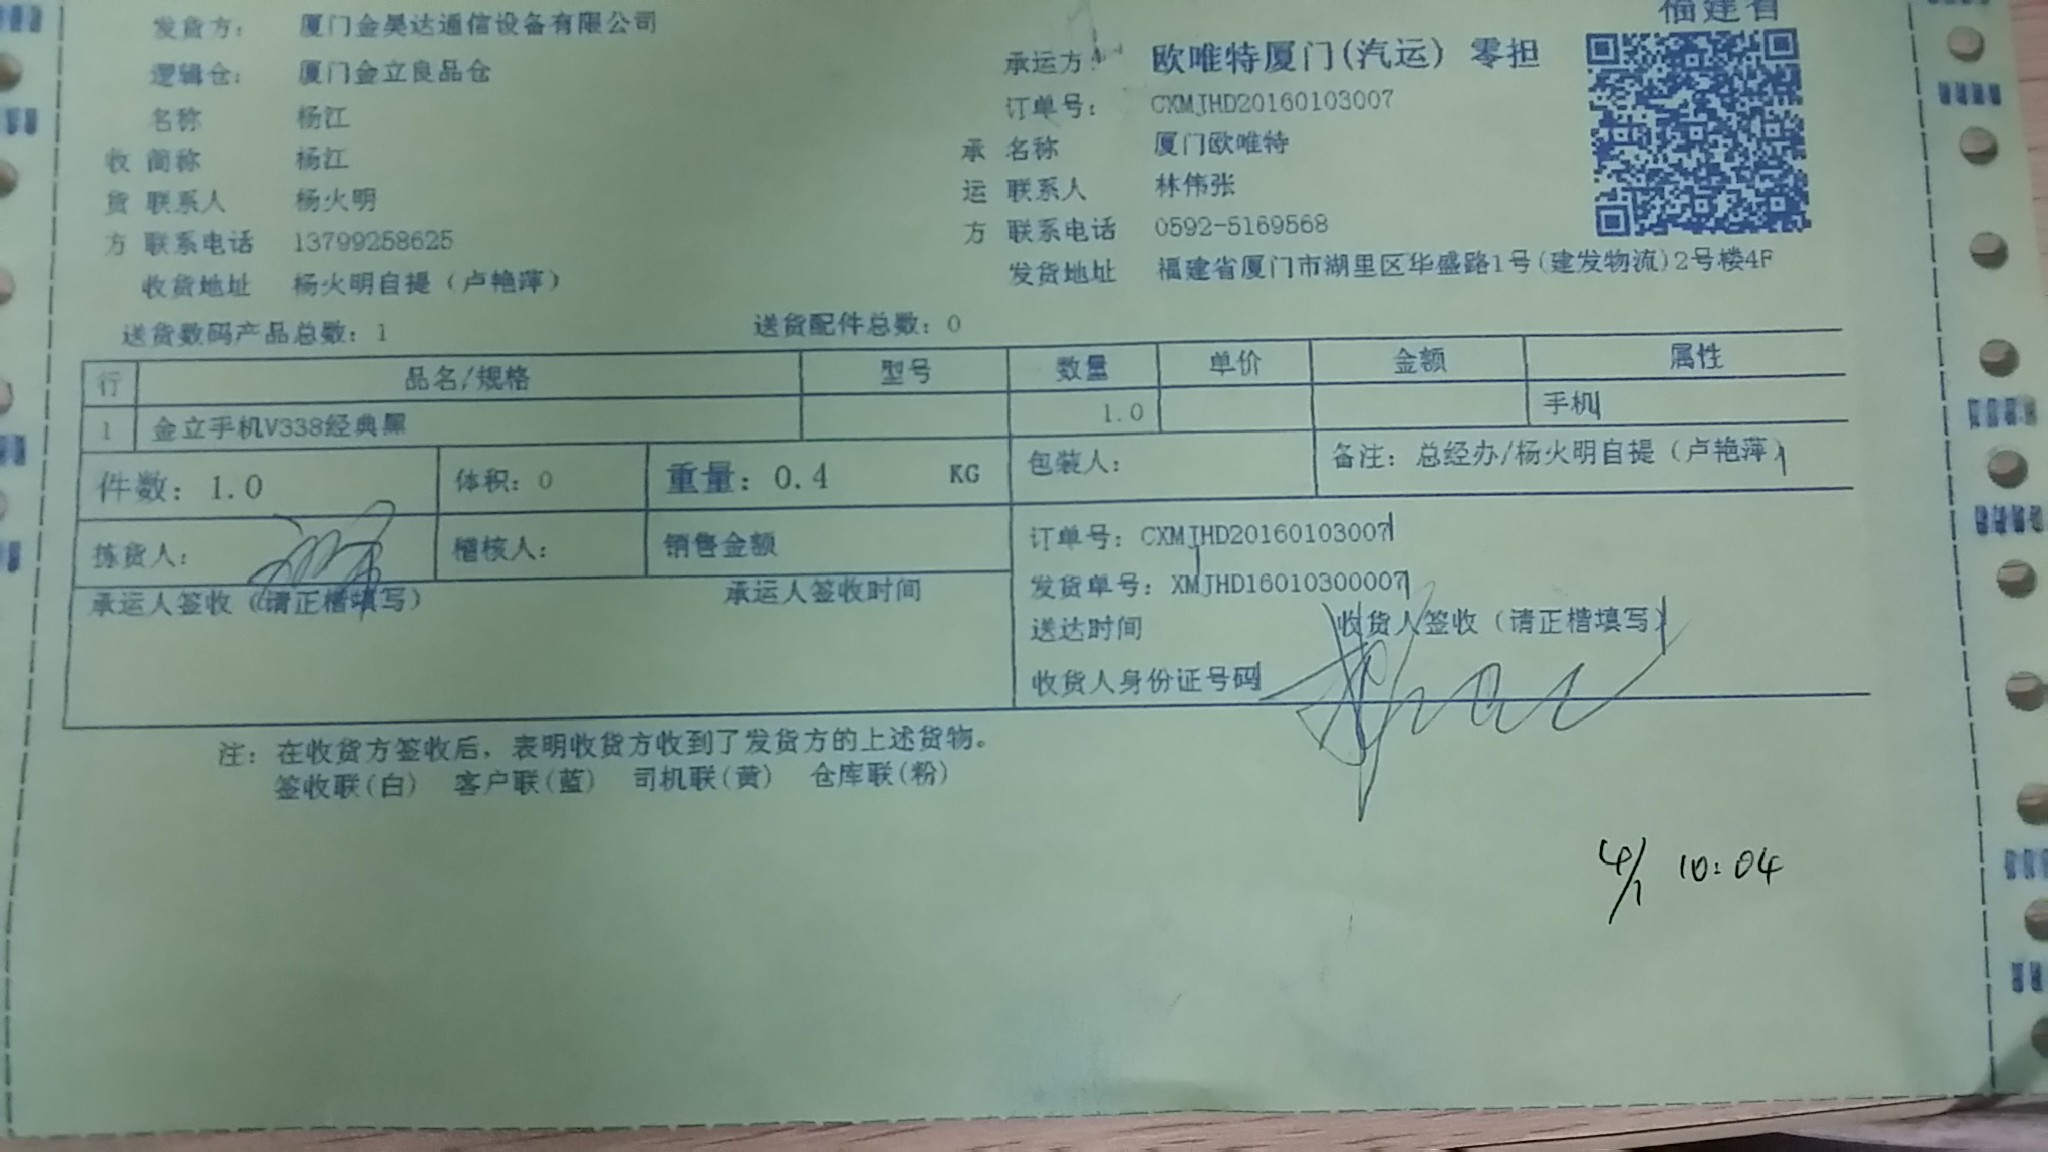 福建省
发货方： 厦门金昊达通信设备有限公司
承运方： 欧唯特厦门(汽运) 零担
逻辑仓： 厦门金立良品仓
订单号： CXMJHD20160103007
名称 杨江
承 名称 厦门欧唯特
收 简称 杨江
运 联系人 林伟张
货 联系人 杨火明
方 联系电话 0592-5169568
方 联系电话 13799258625
发货地址 福建省厦门市湖里区华盛路1号(建发物流)2号楼4F
收货地址 杨火明自提（卢艳萍）
送货数码产品总数：1 送货配件总数：0
行 品名/规格 型号 数量 单价 金额 属性
1 金立手机V338经典黑 1.0 手机
件数：1.0 体积：0 重量：0.4 KG 包装人： 备注：总经办/杨火明自提（卢艳萍）
拣货人： 稽核人： 销售金额 订单号：CXMJHD20160103007
承运人签收（请正楷填写） 承运人签收时间 发货单号：XMJHD16010300007
送达时间 收货人签收（请正楷填写）
收货人身份证号码
注：在收货方签收后，表明收货方收到了发货方的上述货物。
签收联(白) 客户联(蓝) 司机联(黄) 仓库联(粉)
4/1 10:04